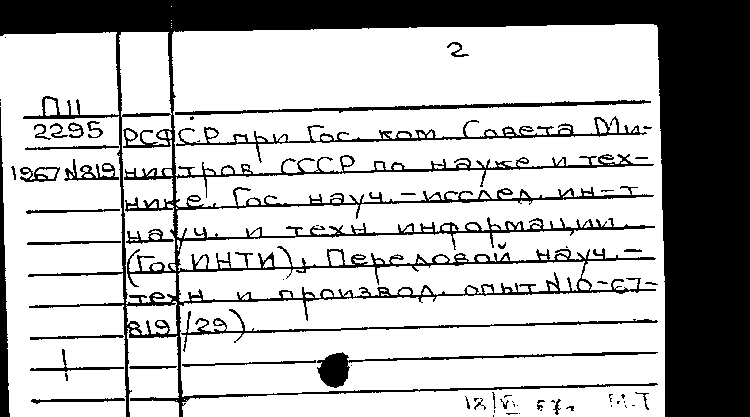 2
П11
2295
1967 N819
РСФСР при Гос. ком. Совета Ми-
нистров СССР по науке и тех-
нике. Гос. науч.-исслед. ин-т
науч. и техн. информации
(ГосИНТИ), Передовой науч.-
техн и производ. опыт N10-67-
819/29).
12/VI 67г. М.Т